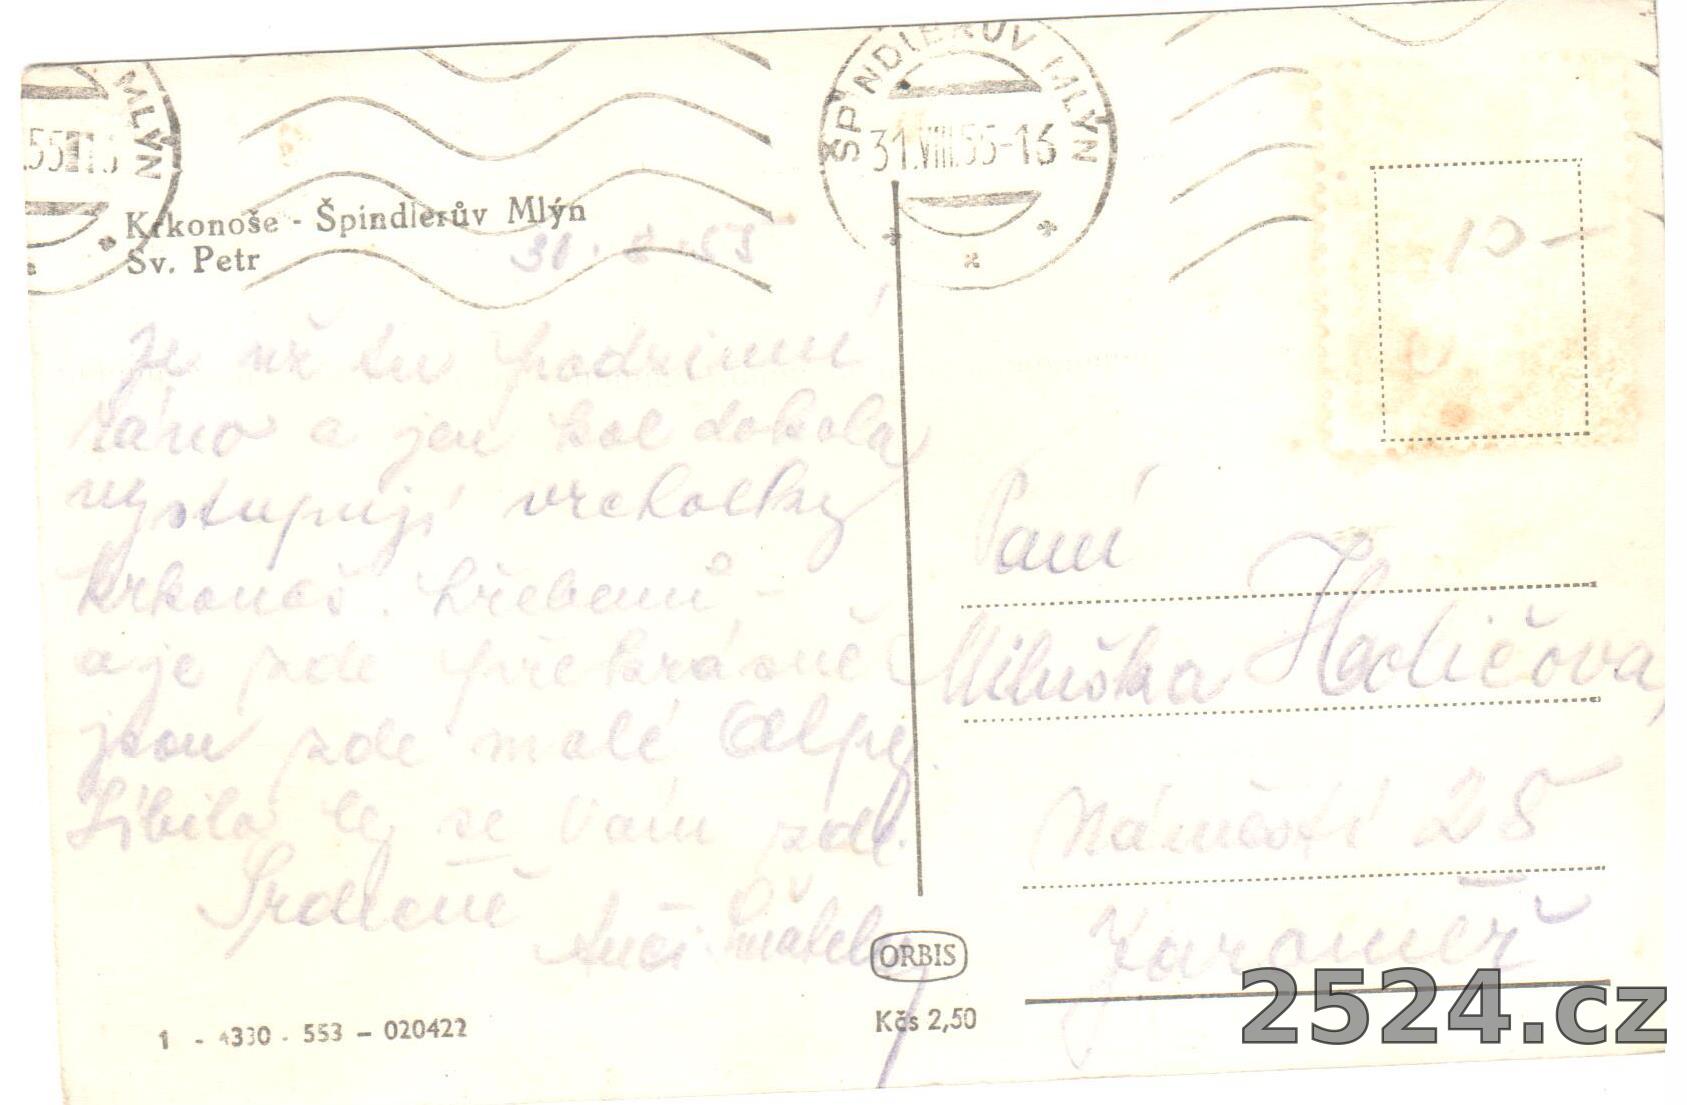 MLÝN
.55
ŠPINDLERŮV MLÝN
31.VIII.55-13
Krkonoše - Špindlerův Mlýn
Sv. Petr
10 -
Je už tu podzimní
ráno a jen kol dokola
vystupují vrcholky
Krkonoš. hřebenů -
a je zde překrásně
jsou zde malé Alpy.
Líbilo by se Vám zde.
Srdečně
Paní
Miluška Hadičova,
Náměstí 25
Jaroměř
ORBIS
Kčs 2,50
1 - 4330 - 553 - 020422
2524.cz